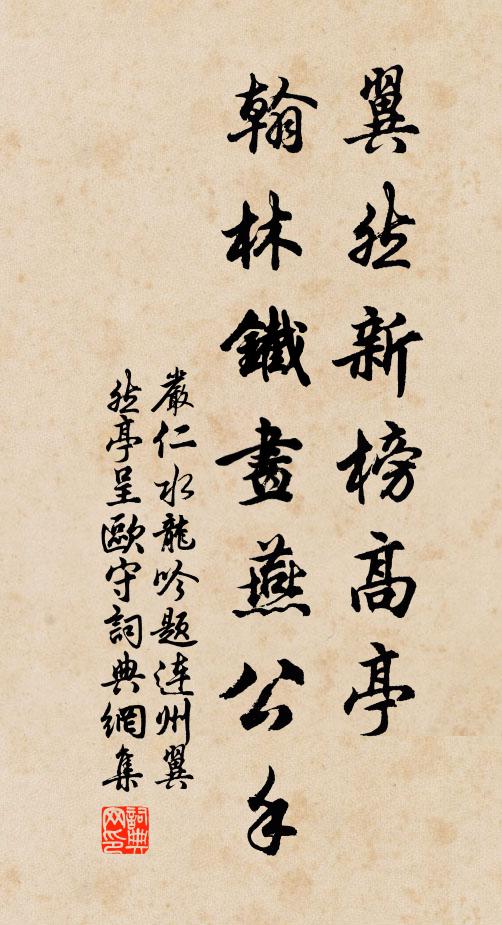 翼然新榜高亭
翰林鐵畫燕公手
嚴仁水龍吟题连州翼
然亭呈歐守詞典網集
詞典网印